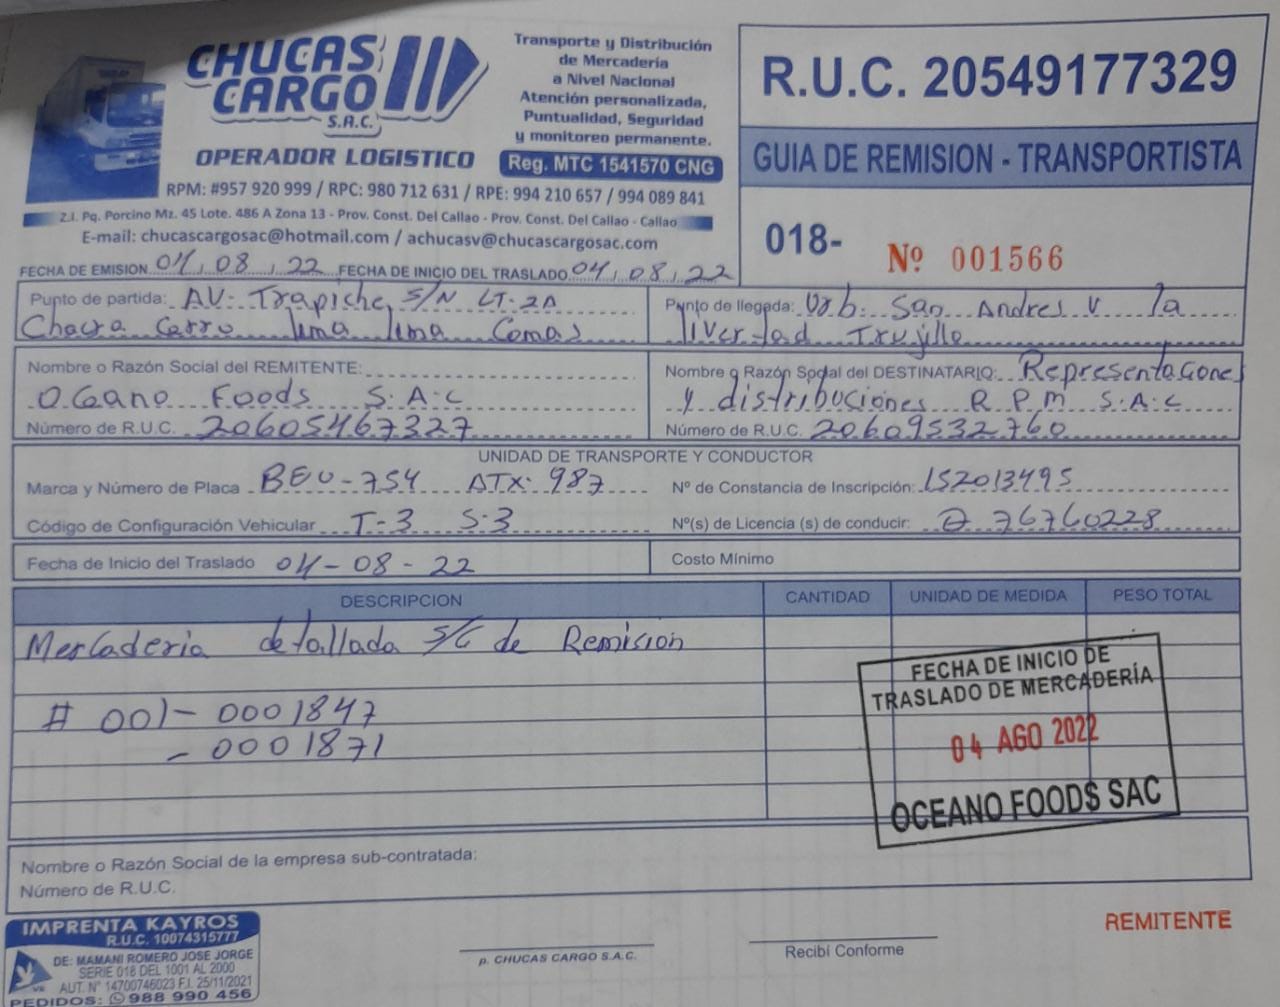 CHUCAS CARGO S.A.C.
OPERADOR LOGISTICO
Transporte y Distribución
de Mercadería
a Nivel Nacional
Atención personalizada,
Puntualidad, Seguridad
y monitoreo permanente.
Reg. MTC 1541570 CNG
RPM: #957 920 999 / RPC: 980 712 631 / RPE: 994 210 657 / 994 089 841
Z.I. Pq. Porcino Mz. 45 Lote. 486 A Zona 13 - Prov. Const. Del Callao - Prov. Const. Del Callao - Callao
E-mail: chucascargosac@hotmail.com / achucasv@chucascargosac.com
R.U.C. 20549177329
GUIA DE REMISION - TRANSPORTISTA
018- Nº 001566
FECHA DE EMISION 04, 08, 22 FECHA DE INICIO DEL TRASLADO 04, 08, 22
Punto de partida: AV: Trapiche S/N LT-2A
Chacra Cerro lima lima Comas
Punto de llegada: Urb. San Andres V la
liVertad Trujillo
Nombre o Razón Social del REMITENTE:
OCeano Foods S.A.C
Número de R.U.C. 20605467327
Nombre o Razón Social del DESTINATARIO: Representacione
y distribuciones R P M S.A.C
Número de R.U.C. 20609532760
UNIDAD DE TRANSPORTE Y CONDUCTOR
Marca y Número de Placa BEU-754 ATX-987
Nº de Constancia de Inscripción: 152013495
Código de Configuración Vehicular T-3 S-3
Nº(s) de Licencia (s) de conducir: Q 76760228
Fecha de Inicio del Traslado 04-08-22
Costo Mínimo
DESCRIPCION CANTIDAD UNIDAD DE MEDIDA PESO TOTAL
Mercaderia detallada S/G de Remision
# 001-0001847
-0001871
FECHA DE INICIO DE
TRASLADO DE MERCADERÍA
04 AGO 2022
OCEANO FOODS SAC
Nombre o Razón Social de la empresa sub-contratada:
Número de R.U.C.
IMPRENTA KAYROS
R.U.C. 10074315777
DE: MAMANI ROMERO JOSE JORGE
SERIE 018 DEL 1001 AL 2000
AUT. Nº 14700746023 F.I. 25/11/2021
PEDIDOS: 988 990 456
p. CHUCAS CARGO S.A.C.
Recibí Conforme
REMITENTE